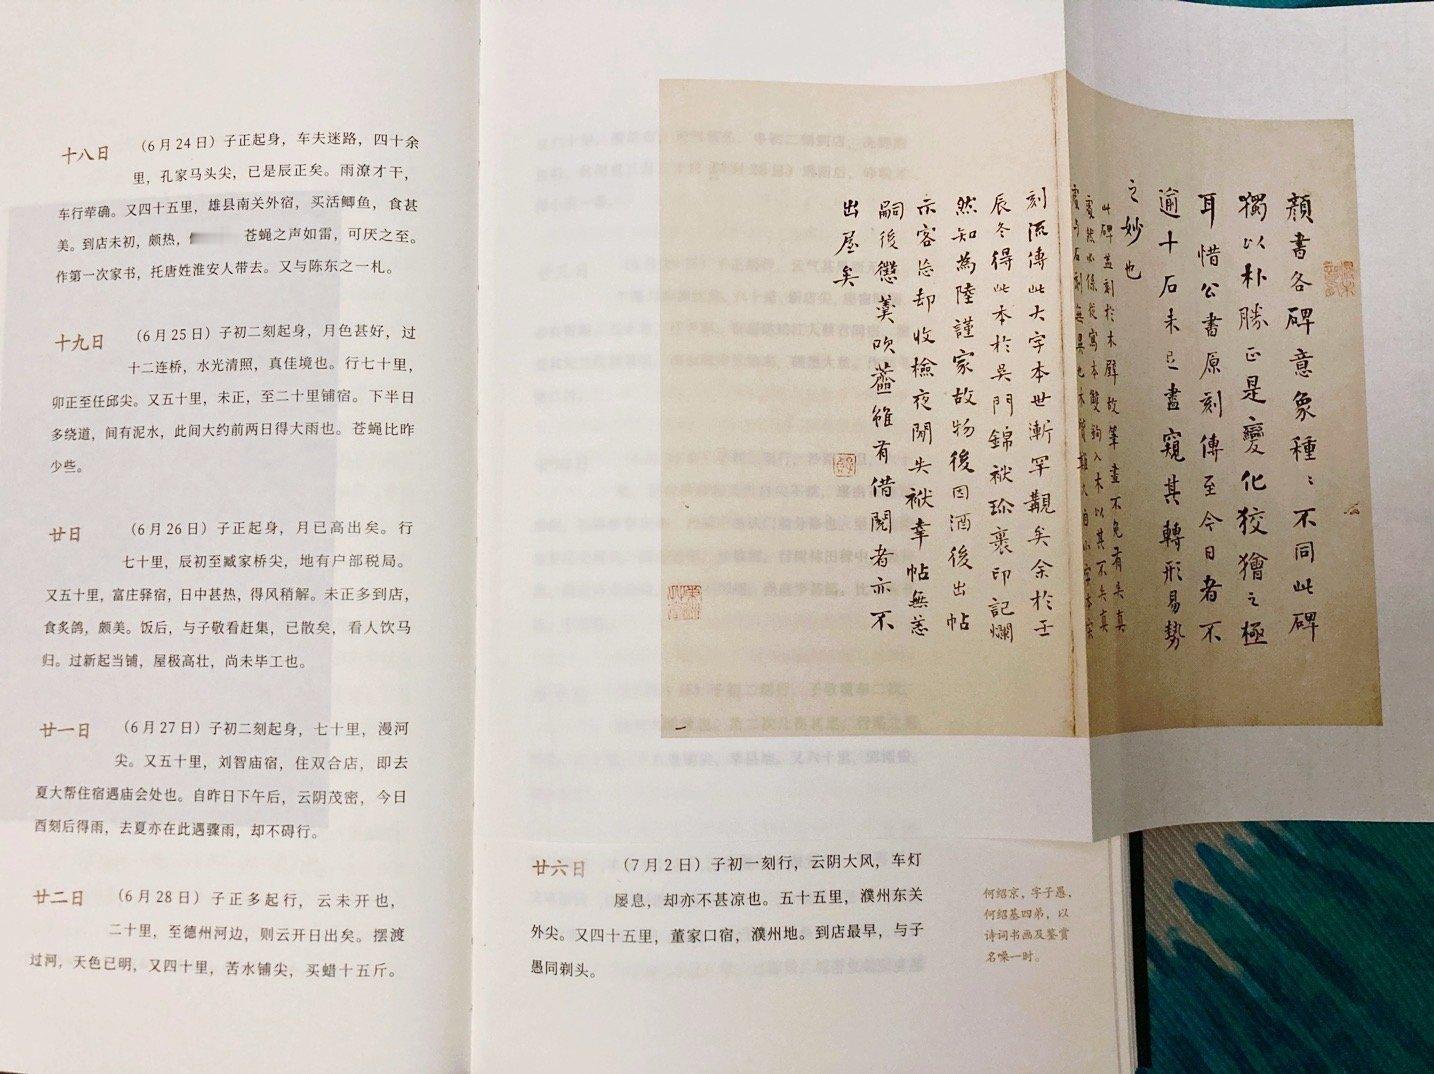 十八日 （6月24日）子正起身，车夫迷路，四十余
里，孔家马头尖，已是辰正矣。雨潦才干，
车行荦确。又四十五里，雄县南关外宿，买活鲫鱼，食甚
美。到店未初，颇热，苍蝇之声如雷，可厌之至。
作第一次家书，托唐姓淮安人带去。又与陈东之一札。
十九日 （6月25日）子初二刻起身，月色甚好，过
十二连桥，水光清照，真佳境也。行七十里，
卯正至任邱尖。又五十里，未正，至二十里铺宿。下半日
多绕道，间有泥水，此间大约前两日得大雨也。苍蝇比昨
少些。
廿日 （6月26日）子正起身，月已高出矣。行
七十里，辰初至臧家桥尖，地有户部税局。
又五十里，富庄驿宿，日中甚热，得风稍解。未正多到店，
食炙鸽，颇美。饭后，与子敬看赶集，已散矣，看人饮马
归。过新起当铺，屋极高壮，尚未毕工也。
廿一日 （6月27日）子初二刻起身，七十里，漫河
尖。又五十里，刘智庙宿，住双合店，即去
夏大帮住宿遇庙会处也。自昨日下午后，云阴茂密，今日
酉刻后得雨，去夏亦在此遇骤雨，却不碍行。
廿二日 （6月28日）子正多起行，云未开也，
二十里，至德州河边，则云开日出矣。摆渡
过河，天色已明，又四十里，苦水铺尖，买蜡十五斤。
顏書各碑意象種〻不同此碑
獨以朴勝正是變化狡獪之極
耳惜公書原刻傳至今日者不
逾十石未足盡窺其轉形易勢
之妙也
此碑蓋刻於木壁故筆畫不免有失真
處然必係後寫本雙鉤入木以其不失真
刻流傳此大字本世漸罕覯矣余於壬
辰冬得此本於吳門錦襆珎裹印記爛
然知為陸謹家故物後因酒後出帖
示客忘却收檢夜閒失襆幸帖無恙
嗣後懲羹吹虀雖有借閱者亦不
出屋矣
廿六日 （7月2日）子初一刻行，云阴大风，车灯
屡息，却亦不甚凉也。五十五里，濮州东关
外尖。又四十五里，董家口宿，濮州地。到店最早，与子
愚同剃头。
何绍京，字子愚，
何绍基四弟，以
诗词书画及鉴赏
名噪一时。